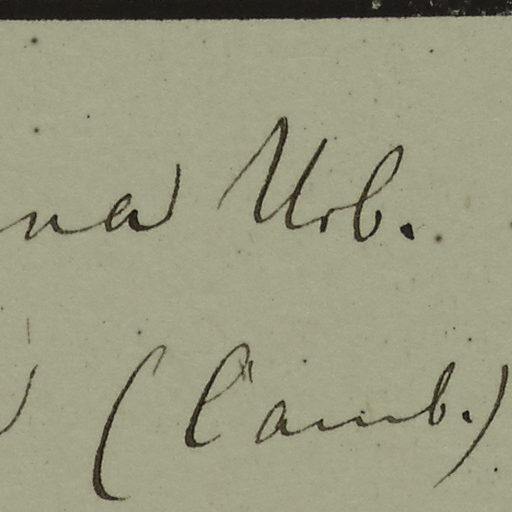 na Urb.
(Camb.)